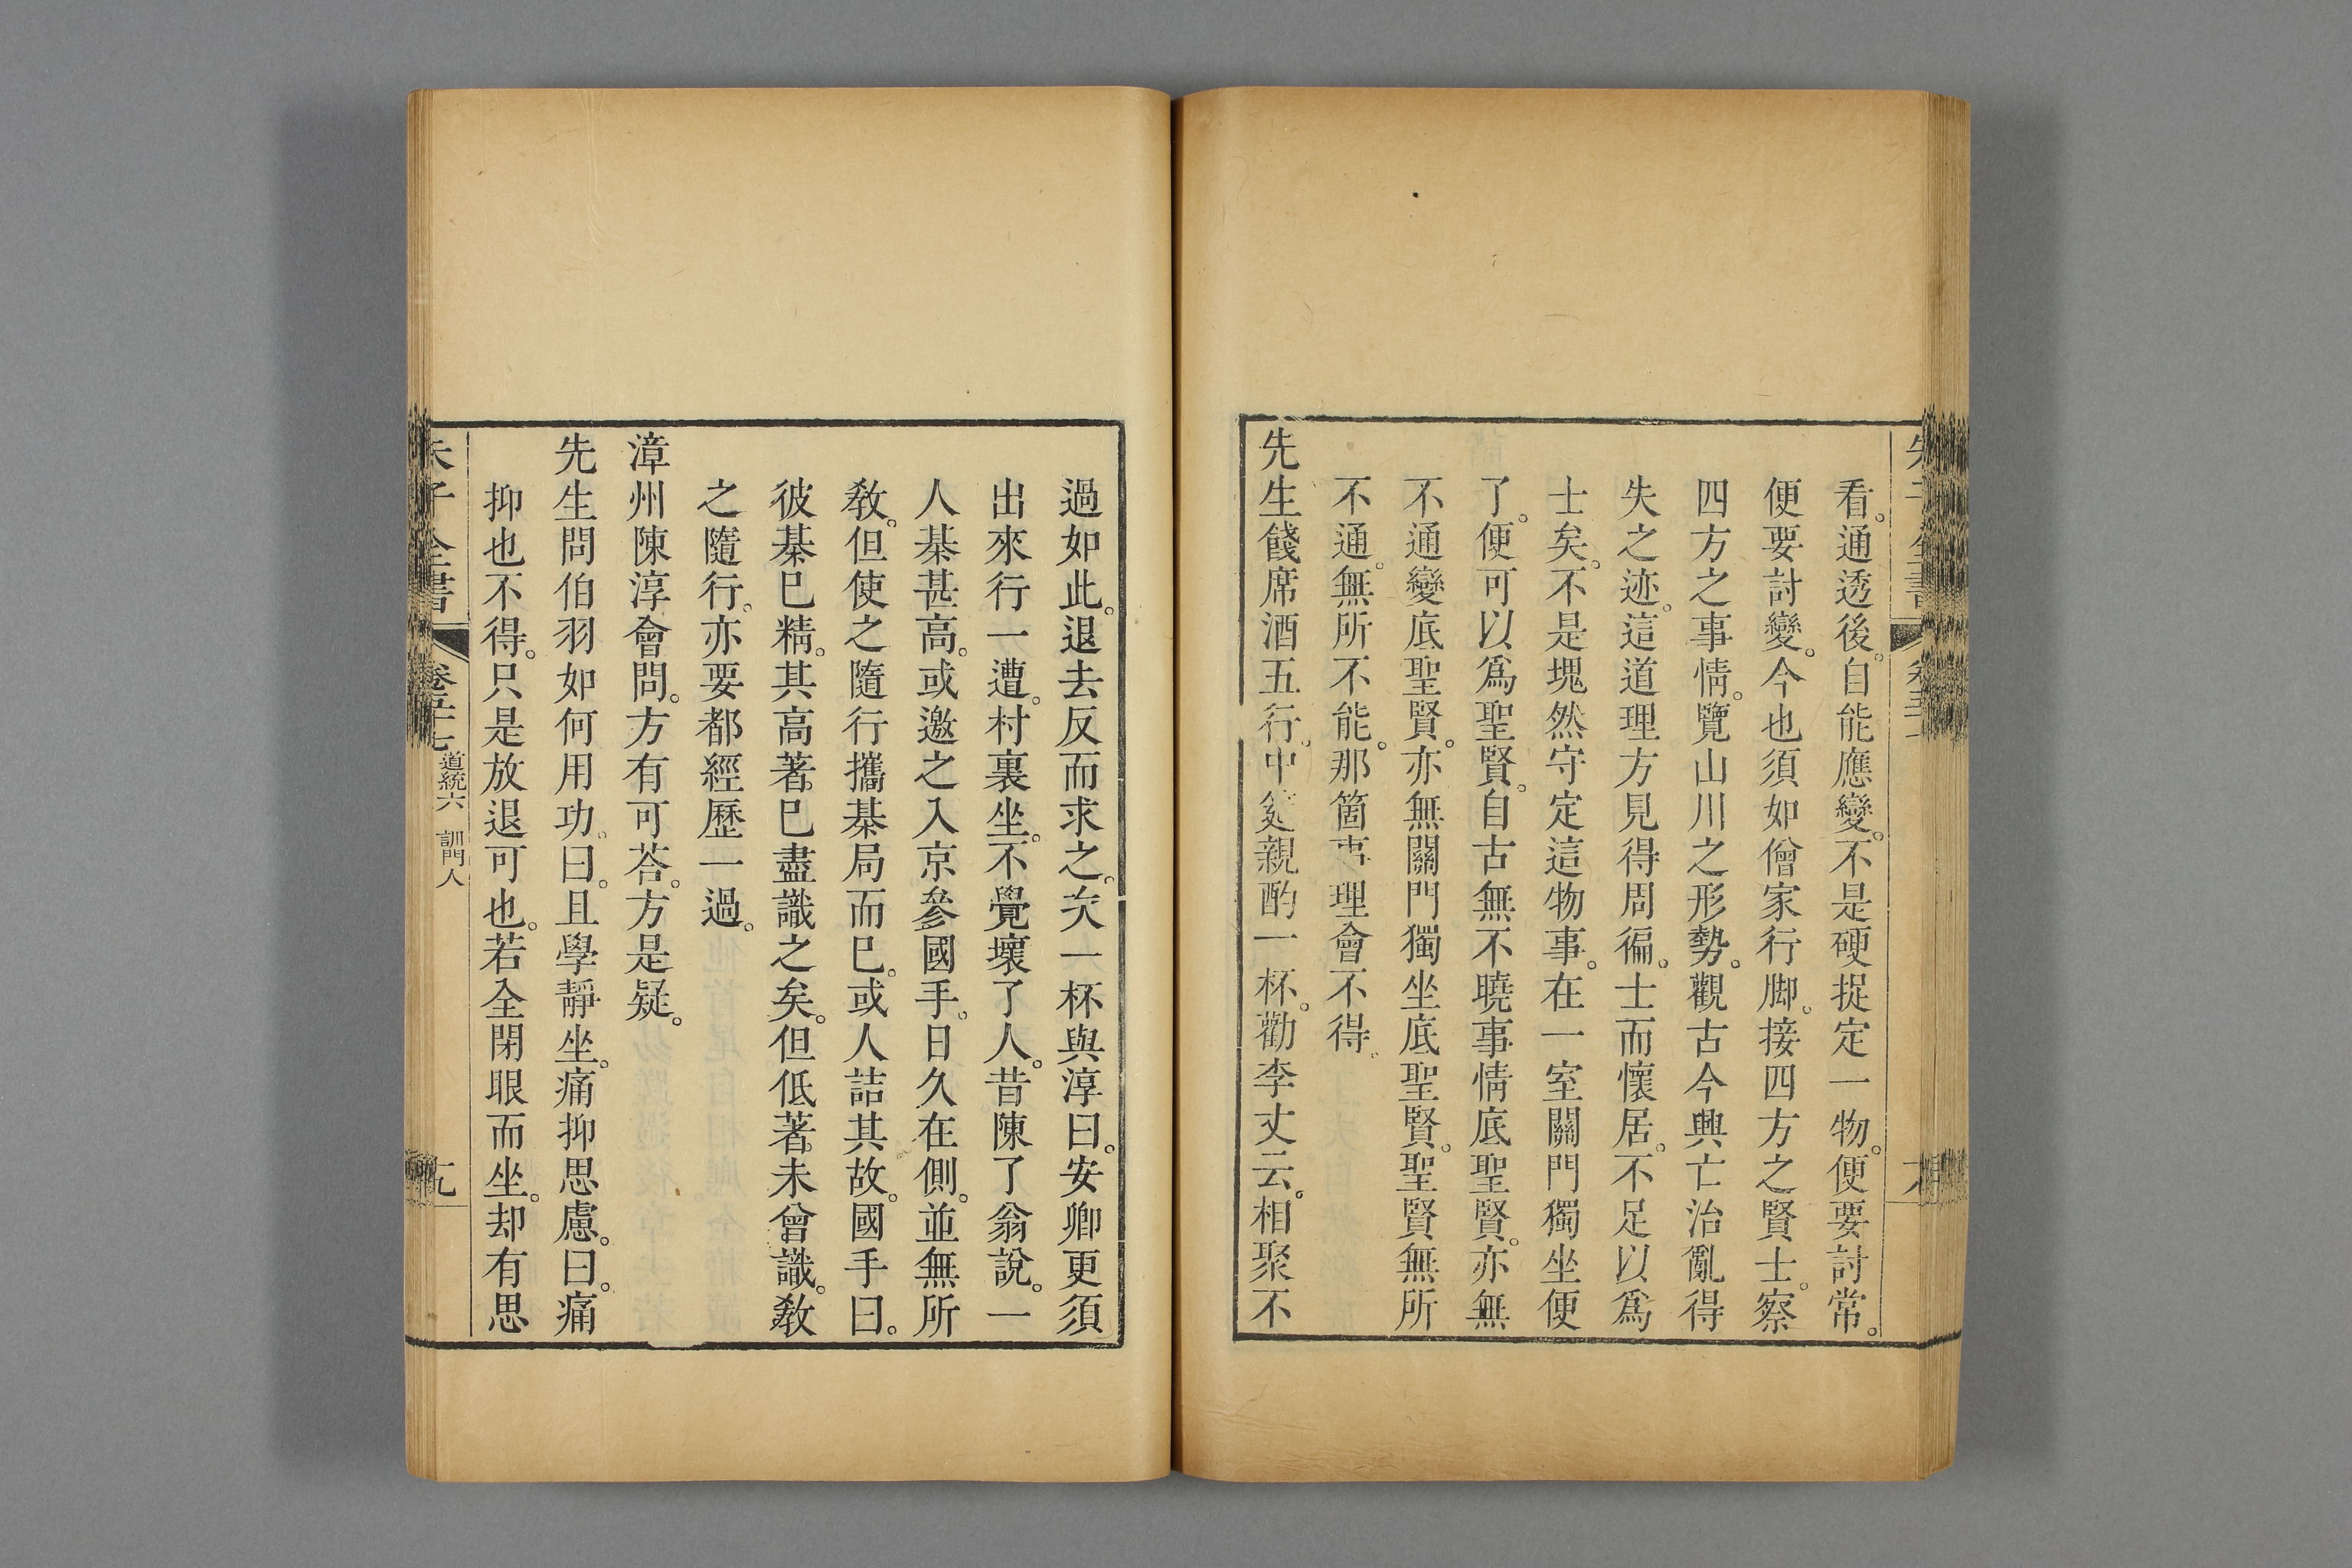 看。通透後。自能應變。不是硬捉定一物。便要討常。
便要討變。今也須如僧家行脚。接四方之賢士。察
四方之事情。覽山川之形勢。觀古今興亡治亂得
失之迹。這道理方見得周徧。士而懷居。不足以爲
士矣。不是塊然守定這物事。在一室關門獨坐便
了。便可以爲聖賢。自古無不曉事情底聖賢。亦無
不通變底聖賢。亦無關門獨坐底聖賢。聖賢無所
不通。無所不能。那箇事理會不得。
先生餞席酒五行。中筵親酌一杯。勸李丈云。相聚不
過如此。退去反而求之。次一杯與淳曰。安卿更須
出來行一遭。村裏坐。不覺壞了人。昔陳了翁說。一
人棊甚高。或邀之入京參國手。日久在側。並無所
教。但使之隨行攜棊局而已。或人詰其故。國手曰。
彼棊已精。其高著。已盡識之矣。但低著。未曾識。教
之隨行。亦要都經歷一過。
漳州陳淳會問。方有可荅。方是疑。
先生問伯羽如何用功。曰。且學靜坐。痛抑思慮。曰。痛
抑也不得。只是放退可也。若全閉眼而坐。却有思
朱子全書 卷五十七 道統六 訓門人